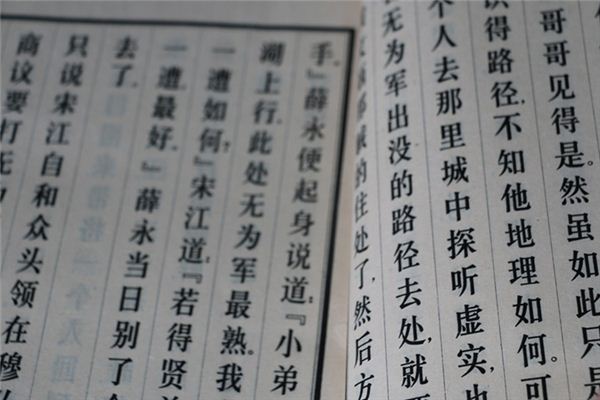 哥哥见得是。然虽如此只是
识得路径,不知他地理如何。可
个人去那里城中探听虚实,也
无为军出没的路径去处,就要
的住处了,然后方
手。』薛永便起身说道:『小弟
湖上行。此处无为军最熟。我
一遭如何?』宋江道:『若得贤弟
一遭,最好。』薛永当日别了
去了。
只说宋江自和众头领在穆
商议要打无